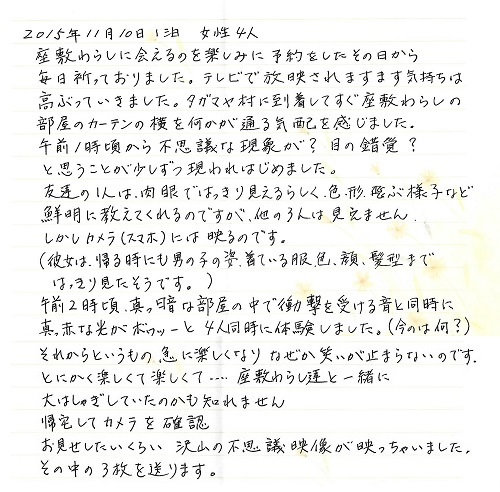 2015年11月10日 1泊 女性4人
座敷わらしに会えるのを楽しみに予約をしたその日から
毎日祈っておりました。テレビで放映されますます気持ちは
高ぶっていきました。タガマヤ村に到着してすぐ座敷わらしの
部屋のカーテンの横を何かが通る気配を感じました。
午前1時頃から不思議な現象が？目の錯覚？
と思うことが少しずつ現われはじめました。
友達の1人は、肉眼ではっきり見えるらしく、色、形、遊ぶ様子など
鮮明に教えてくれるのですが、他の3人は見えません、
しかしカメラ(スマホ)には映るのです。
(彼女は、帰る時にも男の子の姿、着ている服、色、顔、髪型まで
はっきり見たそうです。)
午前2時頃、真っ暗な部屋の中で衝撃を受ける音と同時に
真っ赤な光がボワッーと4人同時に体験しました。(今のは何？)
それからというもの、急に楽しくなりなぜか笑いが止まらないのです、
とにかく楽しくて楽しくて‥‥座敷わらし達と一緒に
大はしゃぎしていたのかも知れません
帰宅してカメラを確認
お見せしたいくらい沢山の不思議映像が映っちゃいました。
その中の3枚を送ります。